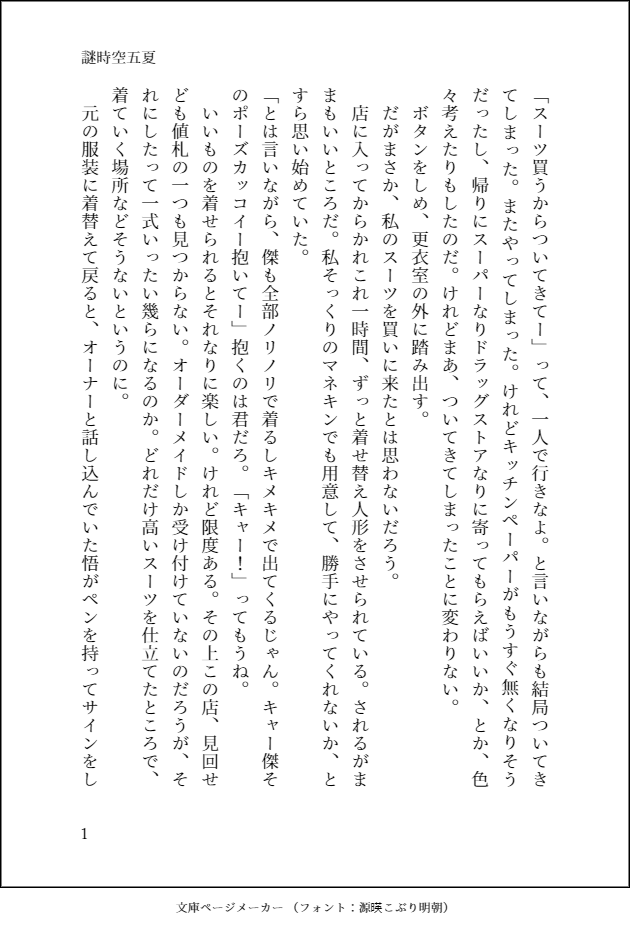 謎時空五夏
「スーツ買うからついてきてー」って、一人で行きなよ。と言いながらも結局ついてき
てしまった。またやってしまった。けれどキッチンペーパーがもうすぐ無くなりそう
だったし、帰りにスーパーなりドラッグストアなりに寄ってもらえばいいか、とか、色
々考えたりもしたのだ。けれどまあ、ついてきてしまったことに変わりない。
ボタンをしめ、更衣室の外に踏み出す。
だがまさか、私のスーツを買いに来たとは思わないだろう。
店に入ってからかれこれ一時間、ずっと着せ替え人形をさせられている。されるがま
まもいいところだ。私そっくりのマネキンでも用意して、勝手にやってくれないか、と
すら思い始めていた。
「とは言いながら、傑も全部ノリノリで着るしキメキメで出てくるじゃん。キャー傑そ
のポーズカッコイー抱いてー」抱くのは君だろ。「キャー！」ってもうね。
いいものを着せられるとそれなりに楽しい。けれど限度ある。その上この店、見回せ
ども値札の一つも見つからない。オーダーメイドしか受け付けていないのだろうが、そ
れにしたって一式いったい幾らになるのか。どれだけ高いスーツを仕立てたところで、
着ていく場所などそうないというのに。
元の服装に着替えて戻ると、オーナーと話し込んでいた悟がペンを持ってサインをし
1
文庫ページメーカー（フォント：源暎こぶり明朝）